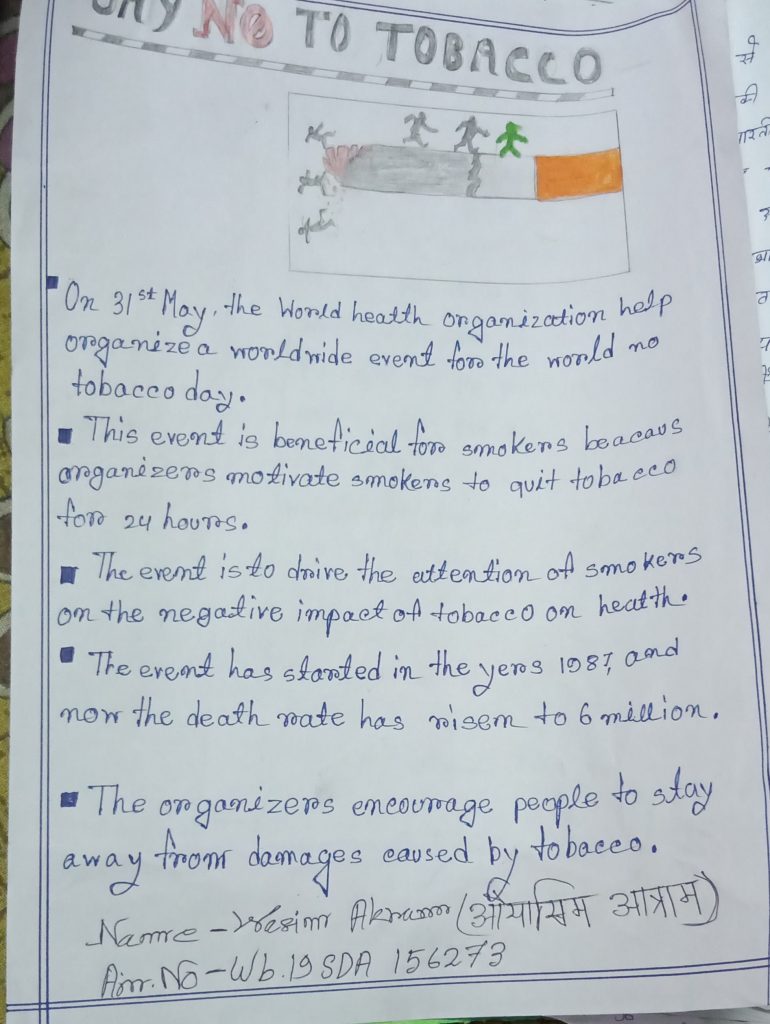 SAY NO TO TOBACCO
On 31st May, the World health organization help
organize a worldwide event for the world no
tobacco day.
This event is beneficial for smokers beacaus
organizers motivate smokers to quit tobacco
for 24 hours.
The event is to drive the attention of smokers
on the negative impact of tobacco on health.
The event has started in the yers 1987, and
now the death rate has risen to 6 million.
The organizers encourage people to stay
away from damages caused by tobacco.
Name - Wasim Akram (औयासिम आत्राम)
Air.No - Wb.19 SDA 156273
से
की